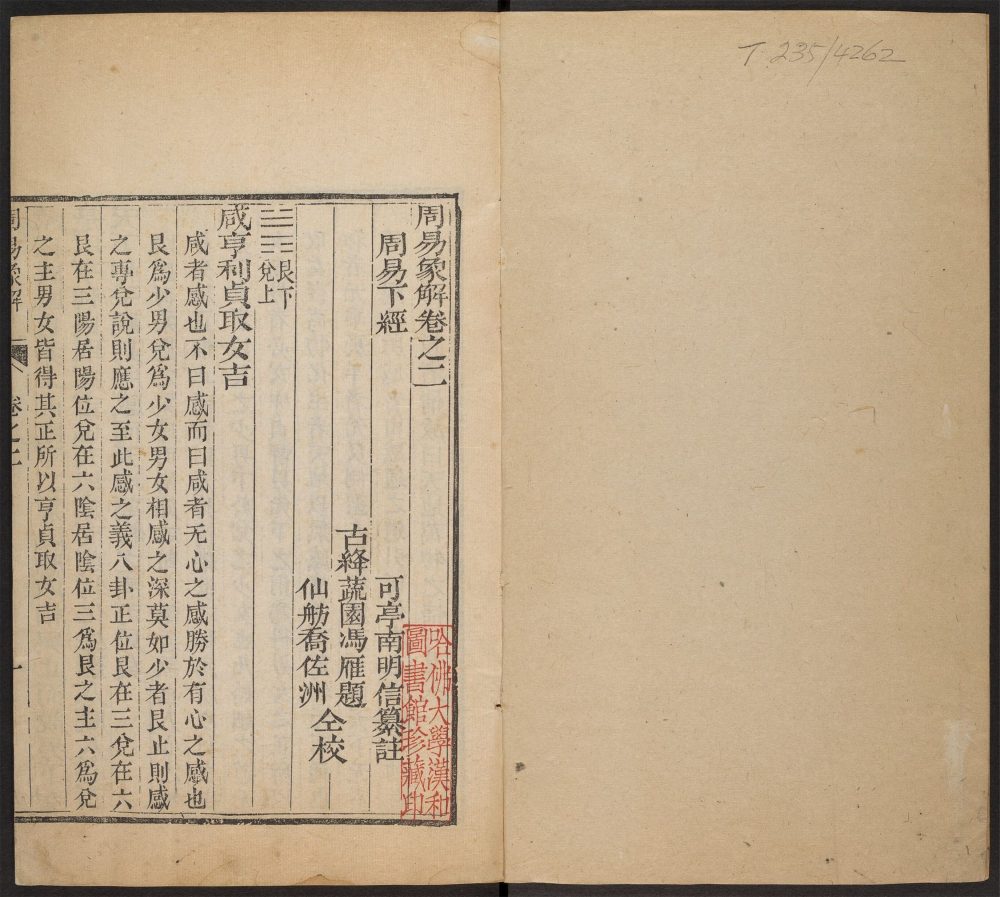 T 235/4262
周易象解卷之二
周易下經
可亭南明信纂註
古絳蔬園馮雁題
仙舫喬佐洲
仝校
艮下
兌上
咸亨利貞取女吉
咸者感也不曰感而曰咸者无心之感勝於有心之感也
艮爲少男兌爲少女男女相感之深莫如少者艮止則感
之專兌說則應之至此感之義八卦正位艮在三兌在六
艮在三陽居陽位兌在六陰居陰位三爲艮之主六爲兌
之主男女皆得其正所以亨貞取女吉
周易象解
卷之二
一
哈佛大學漢和
圖書館珍藏印